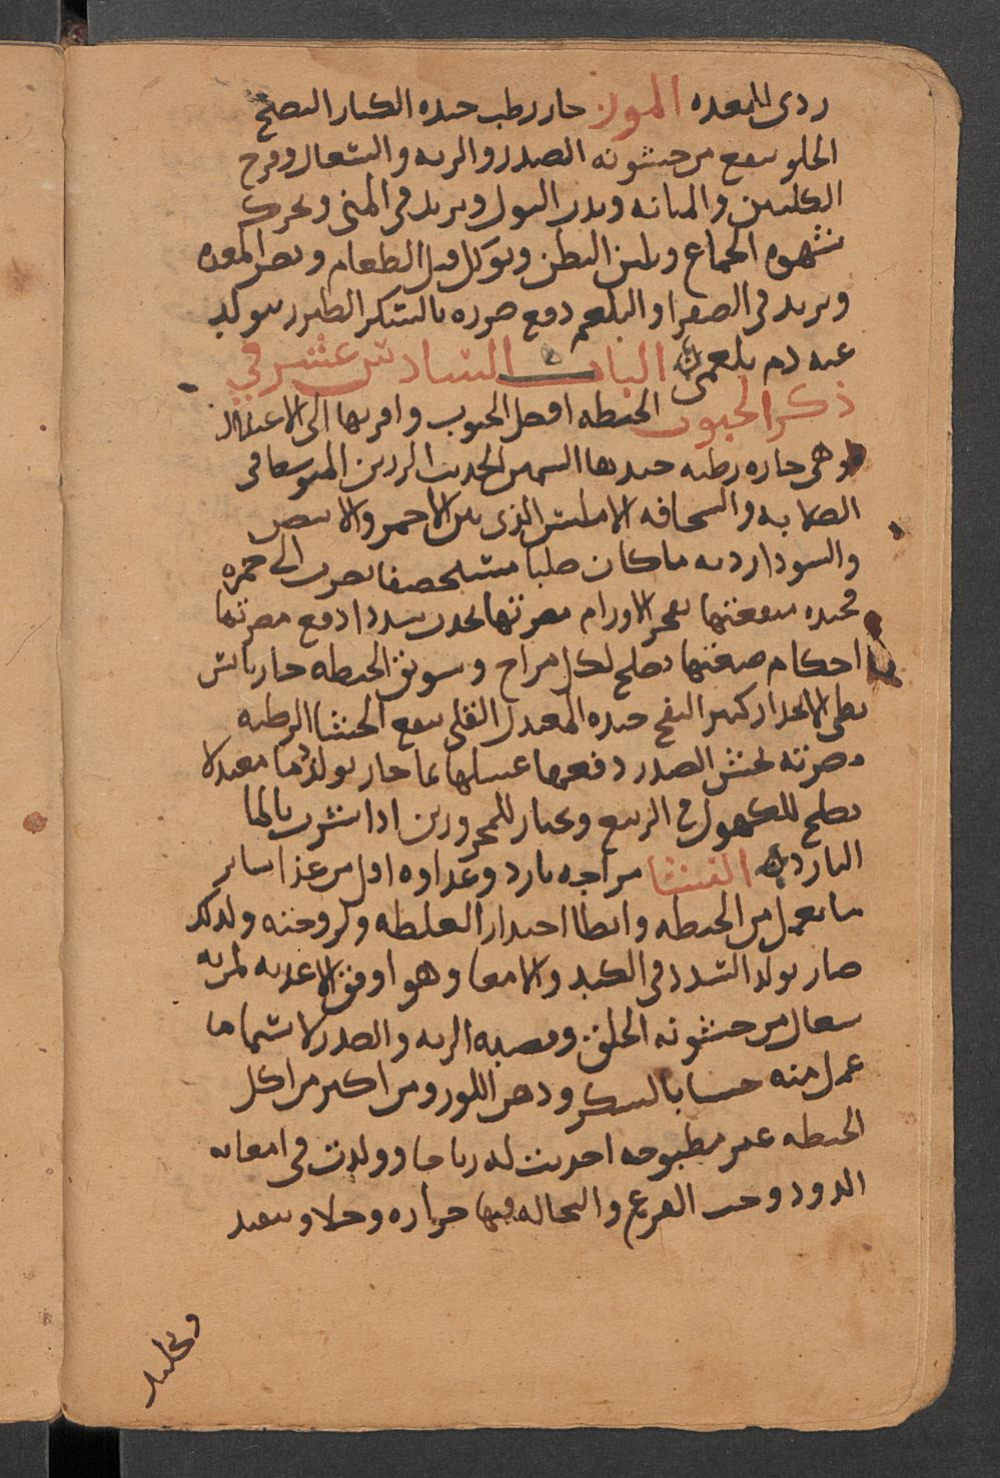 ردى للمعده الموز حار رطب جيده الكبار النضج
الحلو ينفع من خشونه الصدر والريه والسعال وقروح
الكليتين والمثانه ويدر البول ويزيد في المنى ويحرك
شهوه الجماع ويلين البطن ويوكل قبل الطعام ويضر المعده
ويزيد في الصفرا والبلغم دفع ضرره بالسكر الطبرزد يتولد
عنه دم بلغمي الباب السادس عشر في
ذكر الحبوب الحنطه افضل الحبوب واقربها الى الاعتدال
وهي حاره رطبه جيدها السمين الحديث الرزين المتوسط في
الصلابه والسخافه الاملس الذي بين الاحمر والابيض
والسودا رديه ما كان صلبا مستحصفا يضرب الى حمره
فجيده منفعتها تفجر الاورام مضرتها تحدث سددا دفع مضرتها
احكام صنعتها تصلح لكل مزاج وسويق الحنطه حار يابس
بطى الانحدار كثير النفخ جيده المعتدل القلى ينفع الحشا الرطبه
مضرته تخشن الصدر دفعها غسلها بما حار يولد دما معتدلا
يصلح للكهول في الربيع ويختار للمحرورين اذا شرب بالما
البارد النشا مزاجه بارد وغداوه اقل من غذا ساير
ما يعمل من الحنطه وابطا انحدارا لغلظه ولزوجته ولذلك
صار يولد السدد في الكبد والامعا وهو اوفق الاغذيه لمن به
سعال من خشونه الحلق وقصبه الريه والصدر لا سيما ما
عمل منه حسا بالسكر ودهن اللوز ومن اكثر من اكل
الحنطه غير مطبوخه احدثت له رياحا وولدت في امعايه
الدود وحب القرع والنخاله فيها حراره وجلا وتنفيذ
وتحليل